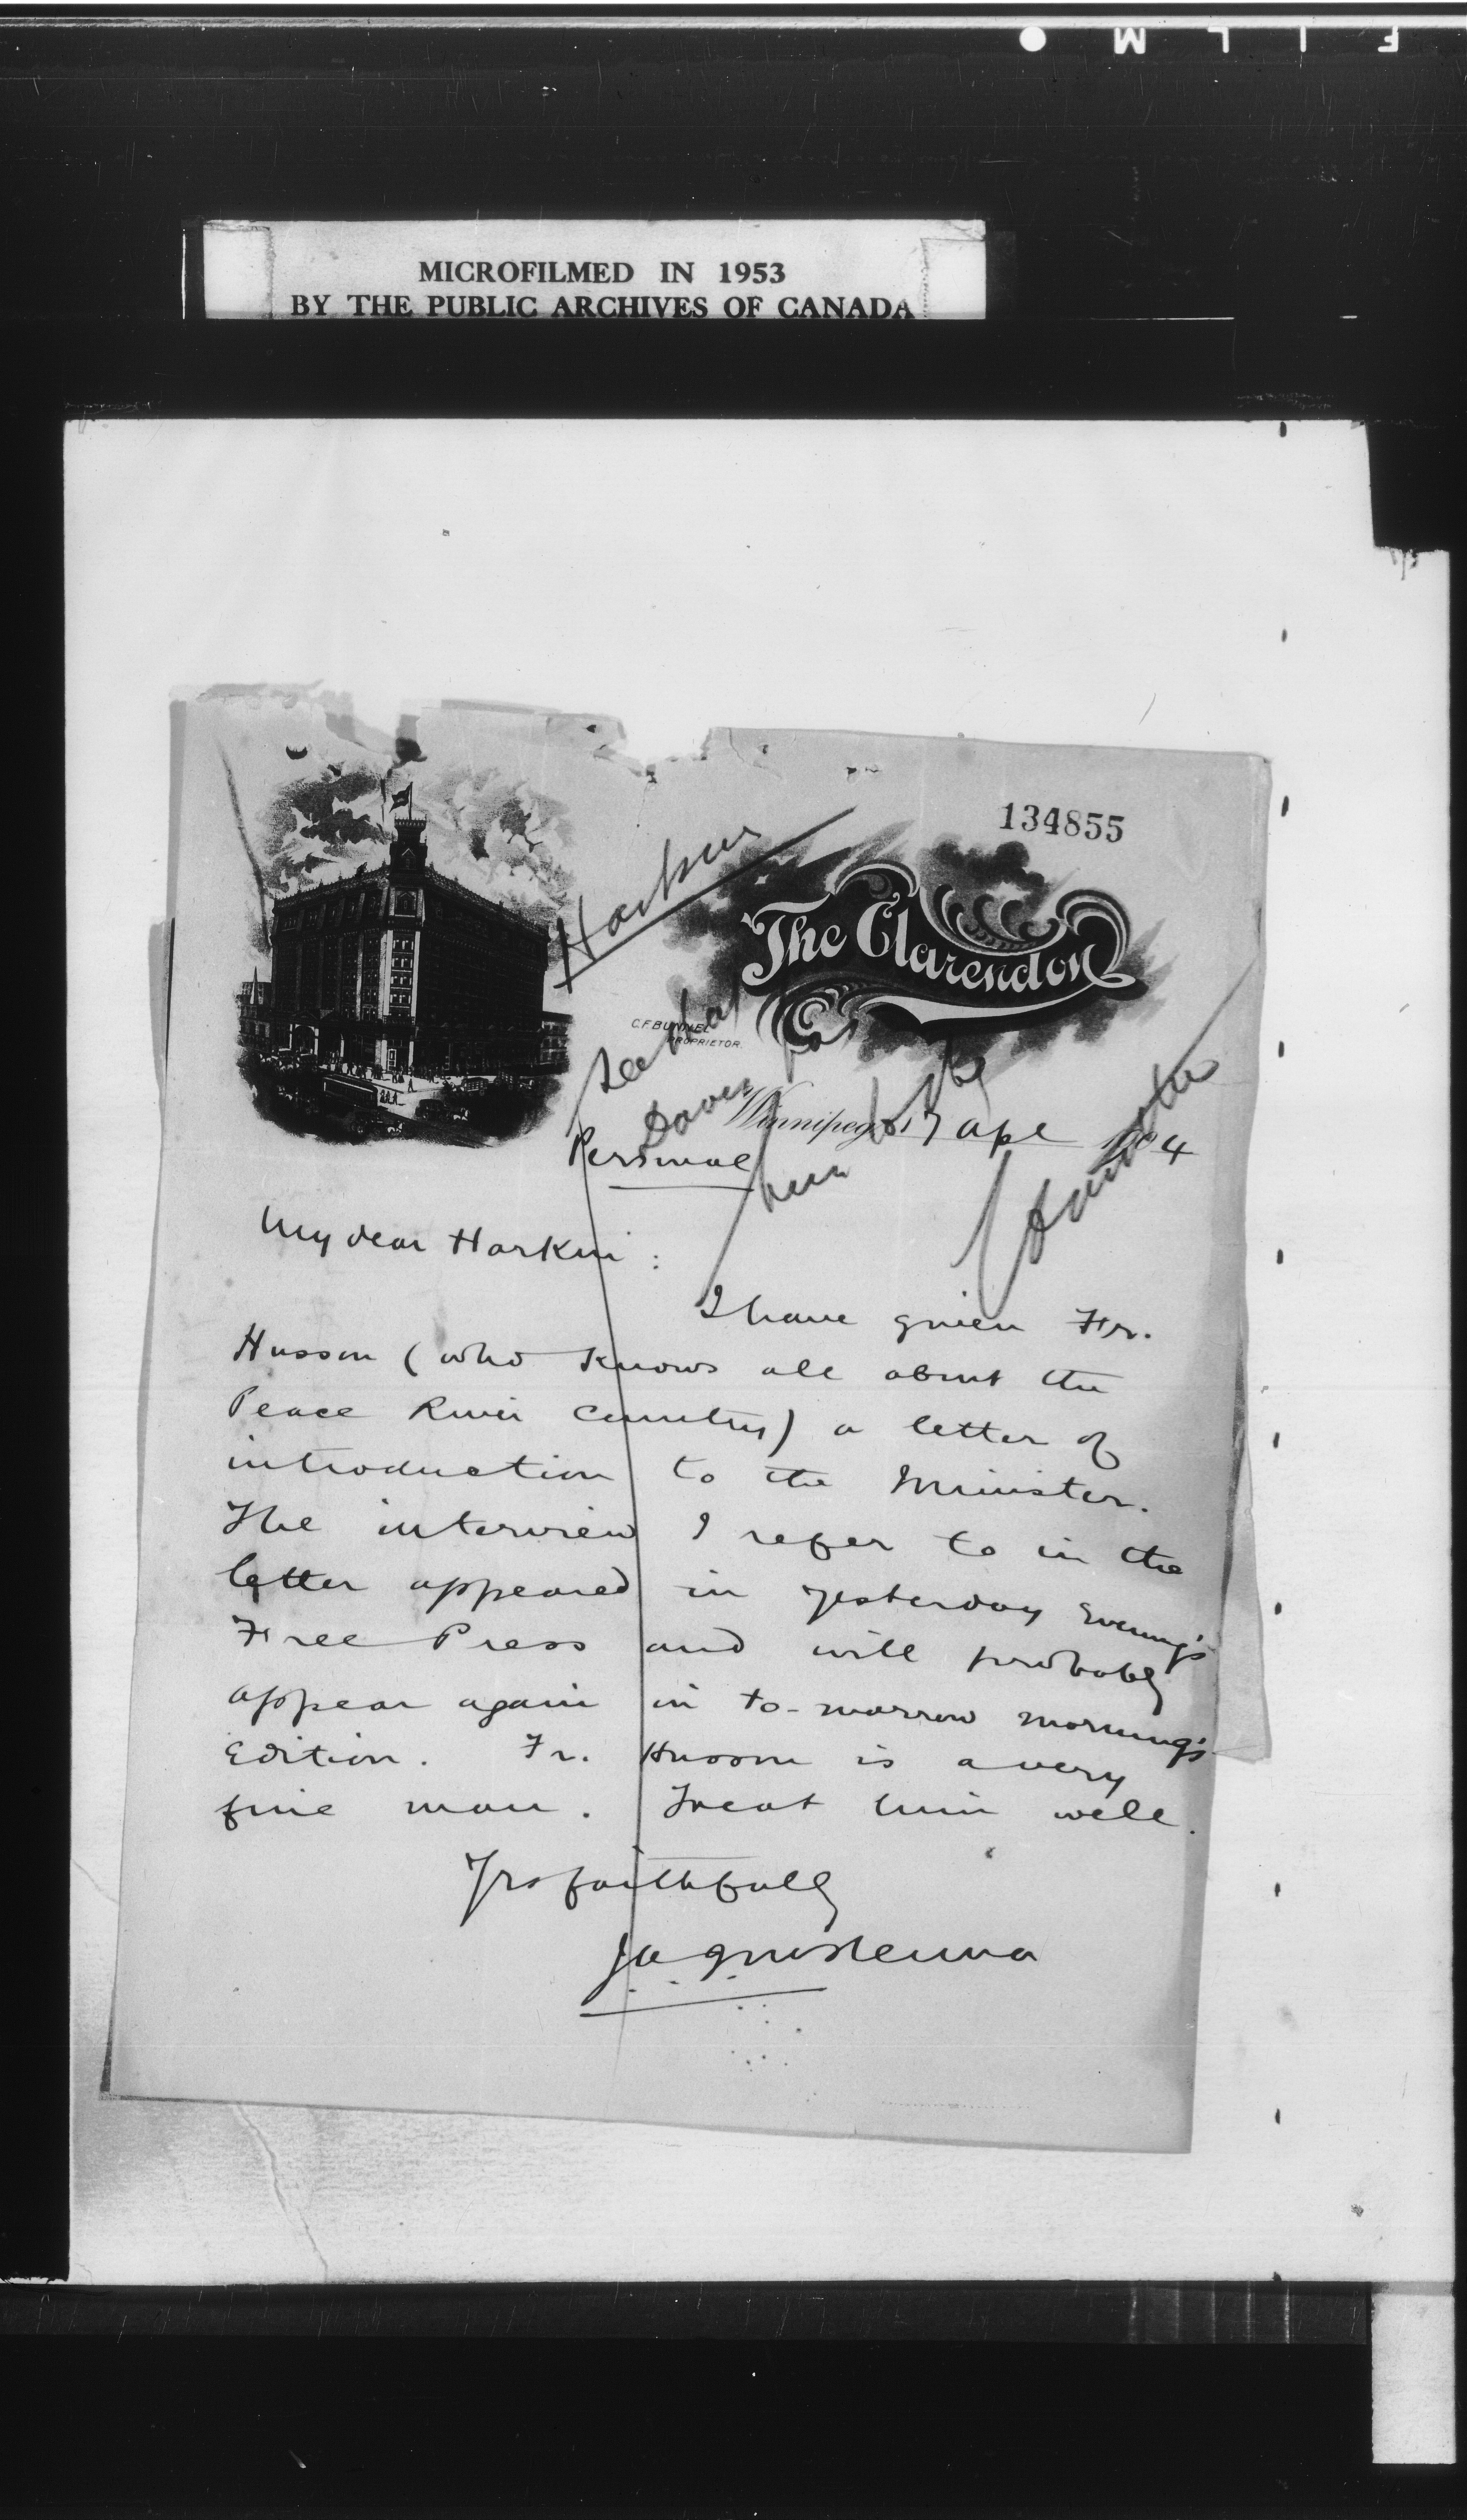 FILM
MICROFILMED IN 1953
BY THE PUBLIC ARCHIVES OF CANADA
134855
Harkin
The Clarendon
C.F. BUNNEL
PROPRIETOR.
See that
Davis has
Winnipeg, 17 Apl 1904
Personal
My dear Harkin :
I have given Fr.
Husson (who knows all about the
Peace River Country) a letter of
introduction to the Minister.
The interview I refer to in the
letter appeared in yesterday Evening's
Free Press and will probably
appear again in to-morrow morning's
Edition. Fr. Husson is a very
fine man. Treat him well.
Yrs faithfully
JAJ McKenna